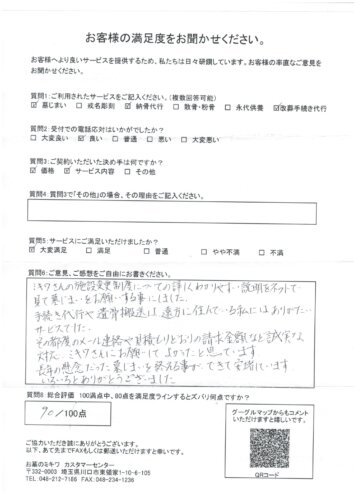 お客様の満足度をお聞かせください。
お客様へより良いサービスを提供するため、私たちは日々研鑽しています。お客様の率直なご意見を
お聞かせください。
質問1:ご利用されたサービスをご記入ください。(複数回答可能)
☑ 墓じまい □ 戒名彫刻 ☑ 納骨代行 □ 散骨・粉骨 □ 永代供養 ☑改葬手続き代行
質問2:受付での電話応対はいかがでしたか?
□ 大変良い ☑ 良い □ 普通 □ 悪い □ 大変悪い
質問3:ご契約いただいた決め手は何ですか?
☑ 価格 ☑ サービス内容 □ その他
質問4:質問3で「その他」の場合、その理由をご記入ください。
質問5:サービスにご満足いただけましたか?
☑ 大変満足 □ 満足 □ 普通 □ やや不満 □ 不満
質問6:ご意見、ご感想をご自由にお書きください。
ミキワさんの施設変更制度についての詳しくわかりやすい説明をネットで
見て墓じまいをお願いする事にしました。
手続き代行や遺骨搬送は遠方に住んでいる私にはありがたい
サービスでした。
その都度のメール連絡や見積もりどおりの請求金額など誠実な
対応 ミキワさんにお願いしてよかったと思っています
長年の懸念だった墓じまいを終える事ができて安堵しています
いろいろとありがとうございました
質問8:総合評価 100満点中、80点を満足度ラインするとズバリ何点ですか?
90/100点
グーグルマップからもコメント
いただけますと嬉しいです。
ご協力いただき誠にありがとうございます。
以下、あて先までFAXもしくは郵送いただけますと幸いです。
お墓のミキワ カスタマーセンター
〒332-0003 埼玉県川口市東領家1-10-6-105
TEL:048-212-7186 FAX:048-234-1236
QRコード